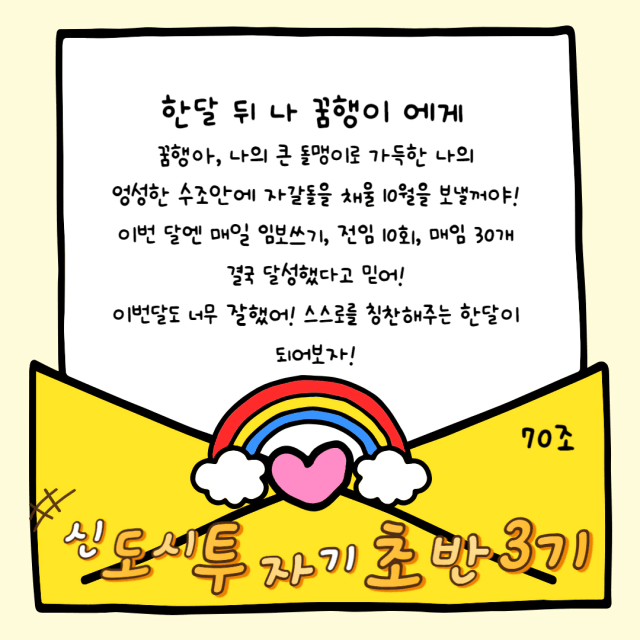 한달 뒤 나 꿈행이 에게
꿈행아, 나의 큰 돌맹이로 가득한 나의
엉성한 수조안에 자갈돌을 채울 10월을 보낼꺼야!
이번 달엔 매일 임보쓰기, 전임 10회, 매임 30개
결국 달성했다고 믿어!
이번달도 너무 잘했어! 스스로를 칭찬해주는 한달이
되어보자!
70조
신도시투자기초반3기